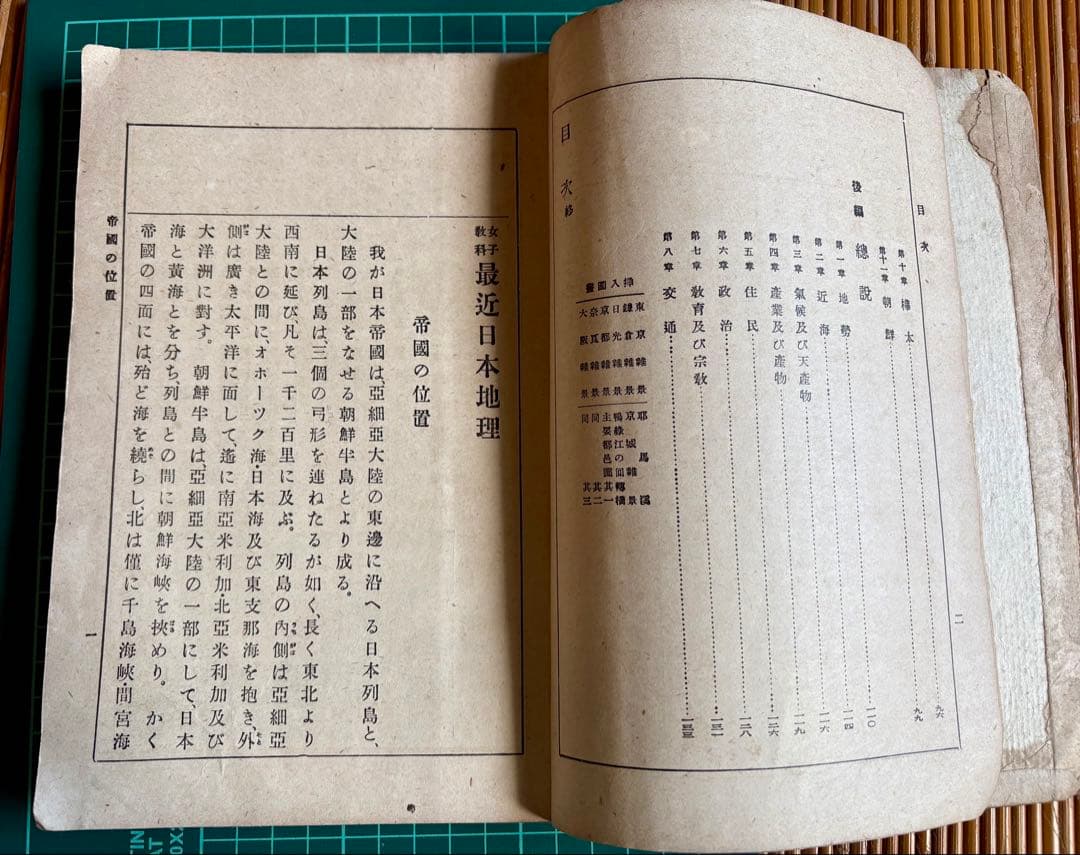 目次
二
第十章 樺太 九六
第十一章 朝鮮 九九
後編 總說
第一章 地勢 一一〇
第二章 近海 一一四
第三章 氣候及び天產物 一一六
第四章 產業及び產物 一一九
第五章 住民 一二六
第六章 政治 一二八
第七章 敎育及び宗敎 一三一
第八章 交通 一三三
挿入圖畫
東京雜景
鎌倉雜景
日光雜景
京都雜景
奈良雜景
大阪雜景
耶馬溪
京城雜景
鴨綠江の囘轉橋
主要都邑圖 其一
同 其二
同 其三
目次 終
女子敎科 最近日本地理
帝國の位置
我が日本帝國は、亞細亞大陸の東邊に沿へる日本列島と、
大陸の一部をなせる朝鮮半島とより成る。
日本列島は、三個の弓形を連ねたるが如く、長く東北より
西南に延び、凡そ一千二百里に及ぶ。列島の內側は亞細亞
大陸との間に、オホーツク海・日本海及び東支那海を抱き、外
側は廣き太平洋に面して、遙に南亞米利加・北亞米利加及び
大洋洲に對す。朝鮮半島は、亞細亞大陸の一部にして、日本
海と黃海とを分ち、列島との間に朝鮮海峽を挾めり。かく
帝國の四面には殆ど海を繞らし、北は僅に千島海峽・間宮海
帝國の位置
一